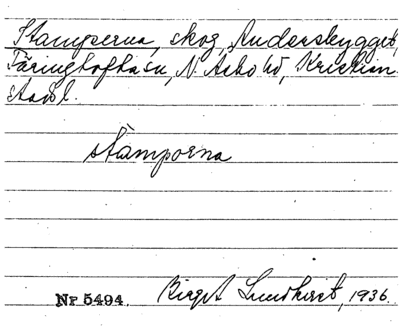 Stamperna, skog, Anderskygget,
Färinghofhusu, N. Åsbo hd, Kristian
stads l.
stämporna
Nr 5494. Birgit Lundkvist, 1936.